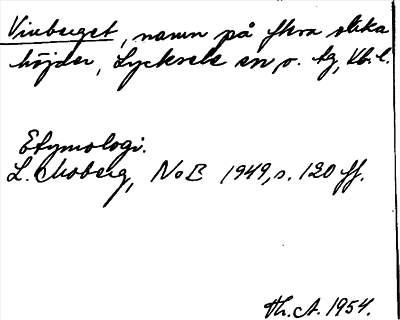 Vinberget, namn på flera olika
höjder, Lycksele sn o. lg, Vb. l.
Etymologi.
L. Moberg, NoB 1949, s. 120 ff.
Th. A. 1954.